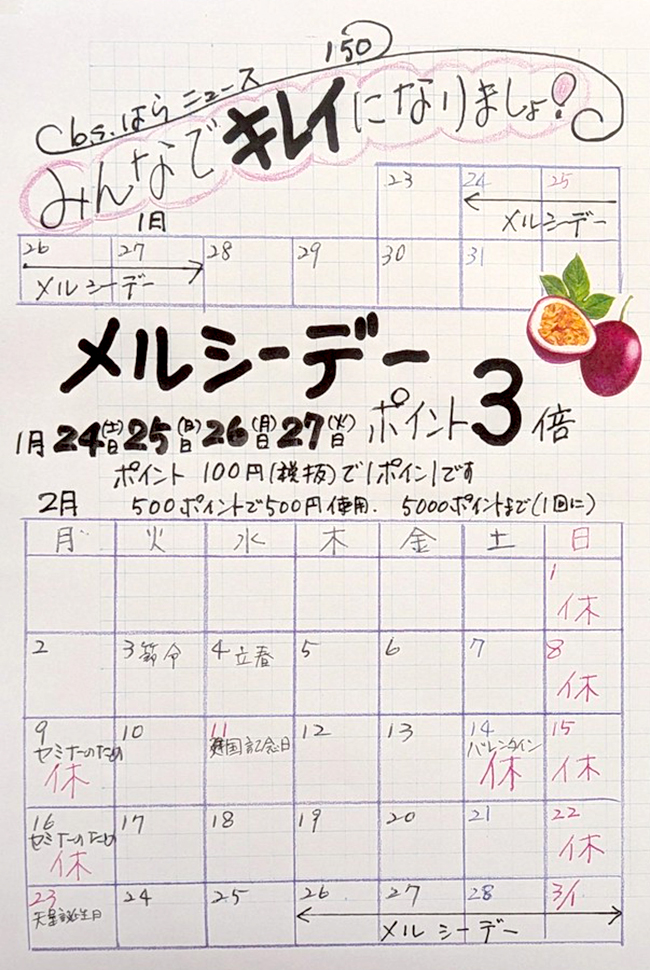 150
cbs.はらニュース
みんなでキレイになりましょ!
1月
23 24 25
メルシーデー
26 27 28 29 30 31
メルシーデー
メルシーデー
1月 24(土)日 25(日)日 26(月)日 27(火)日 ポイント 3倍
ポイント 100円(税抜)で1ポイントです
2月 500ポイントで500円使用. 5000ポイントまで(1回に)
月 火 水 木 金 土 日
1
休
2 3 節分 4 立春 5 6 7 8
休
9 10 11 12 13 14 15
セミナーのため 建国記念日 バレンタイン
休 休 休
16 17 18 19 20 21 22
セミナーのため
休 休
23 24 25 26 27 28 3/1
天皇誕生日
メルシーデー